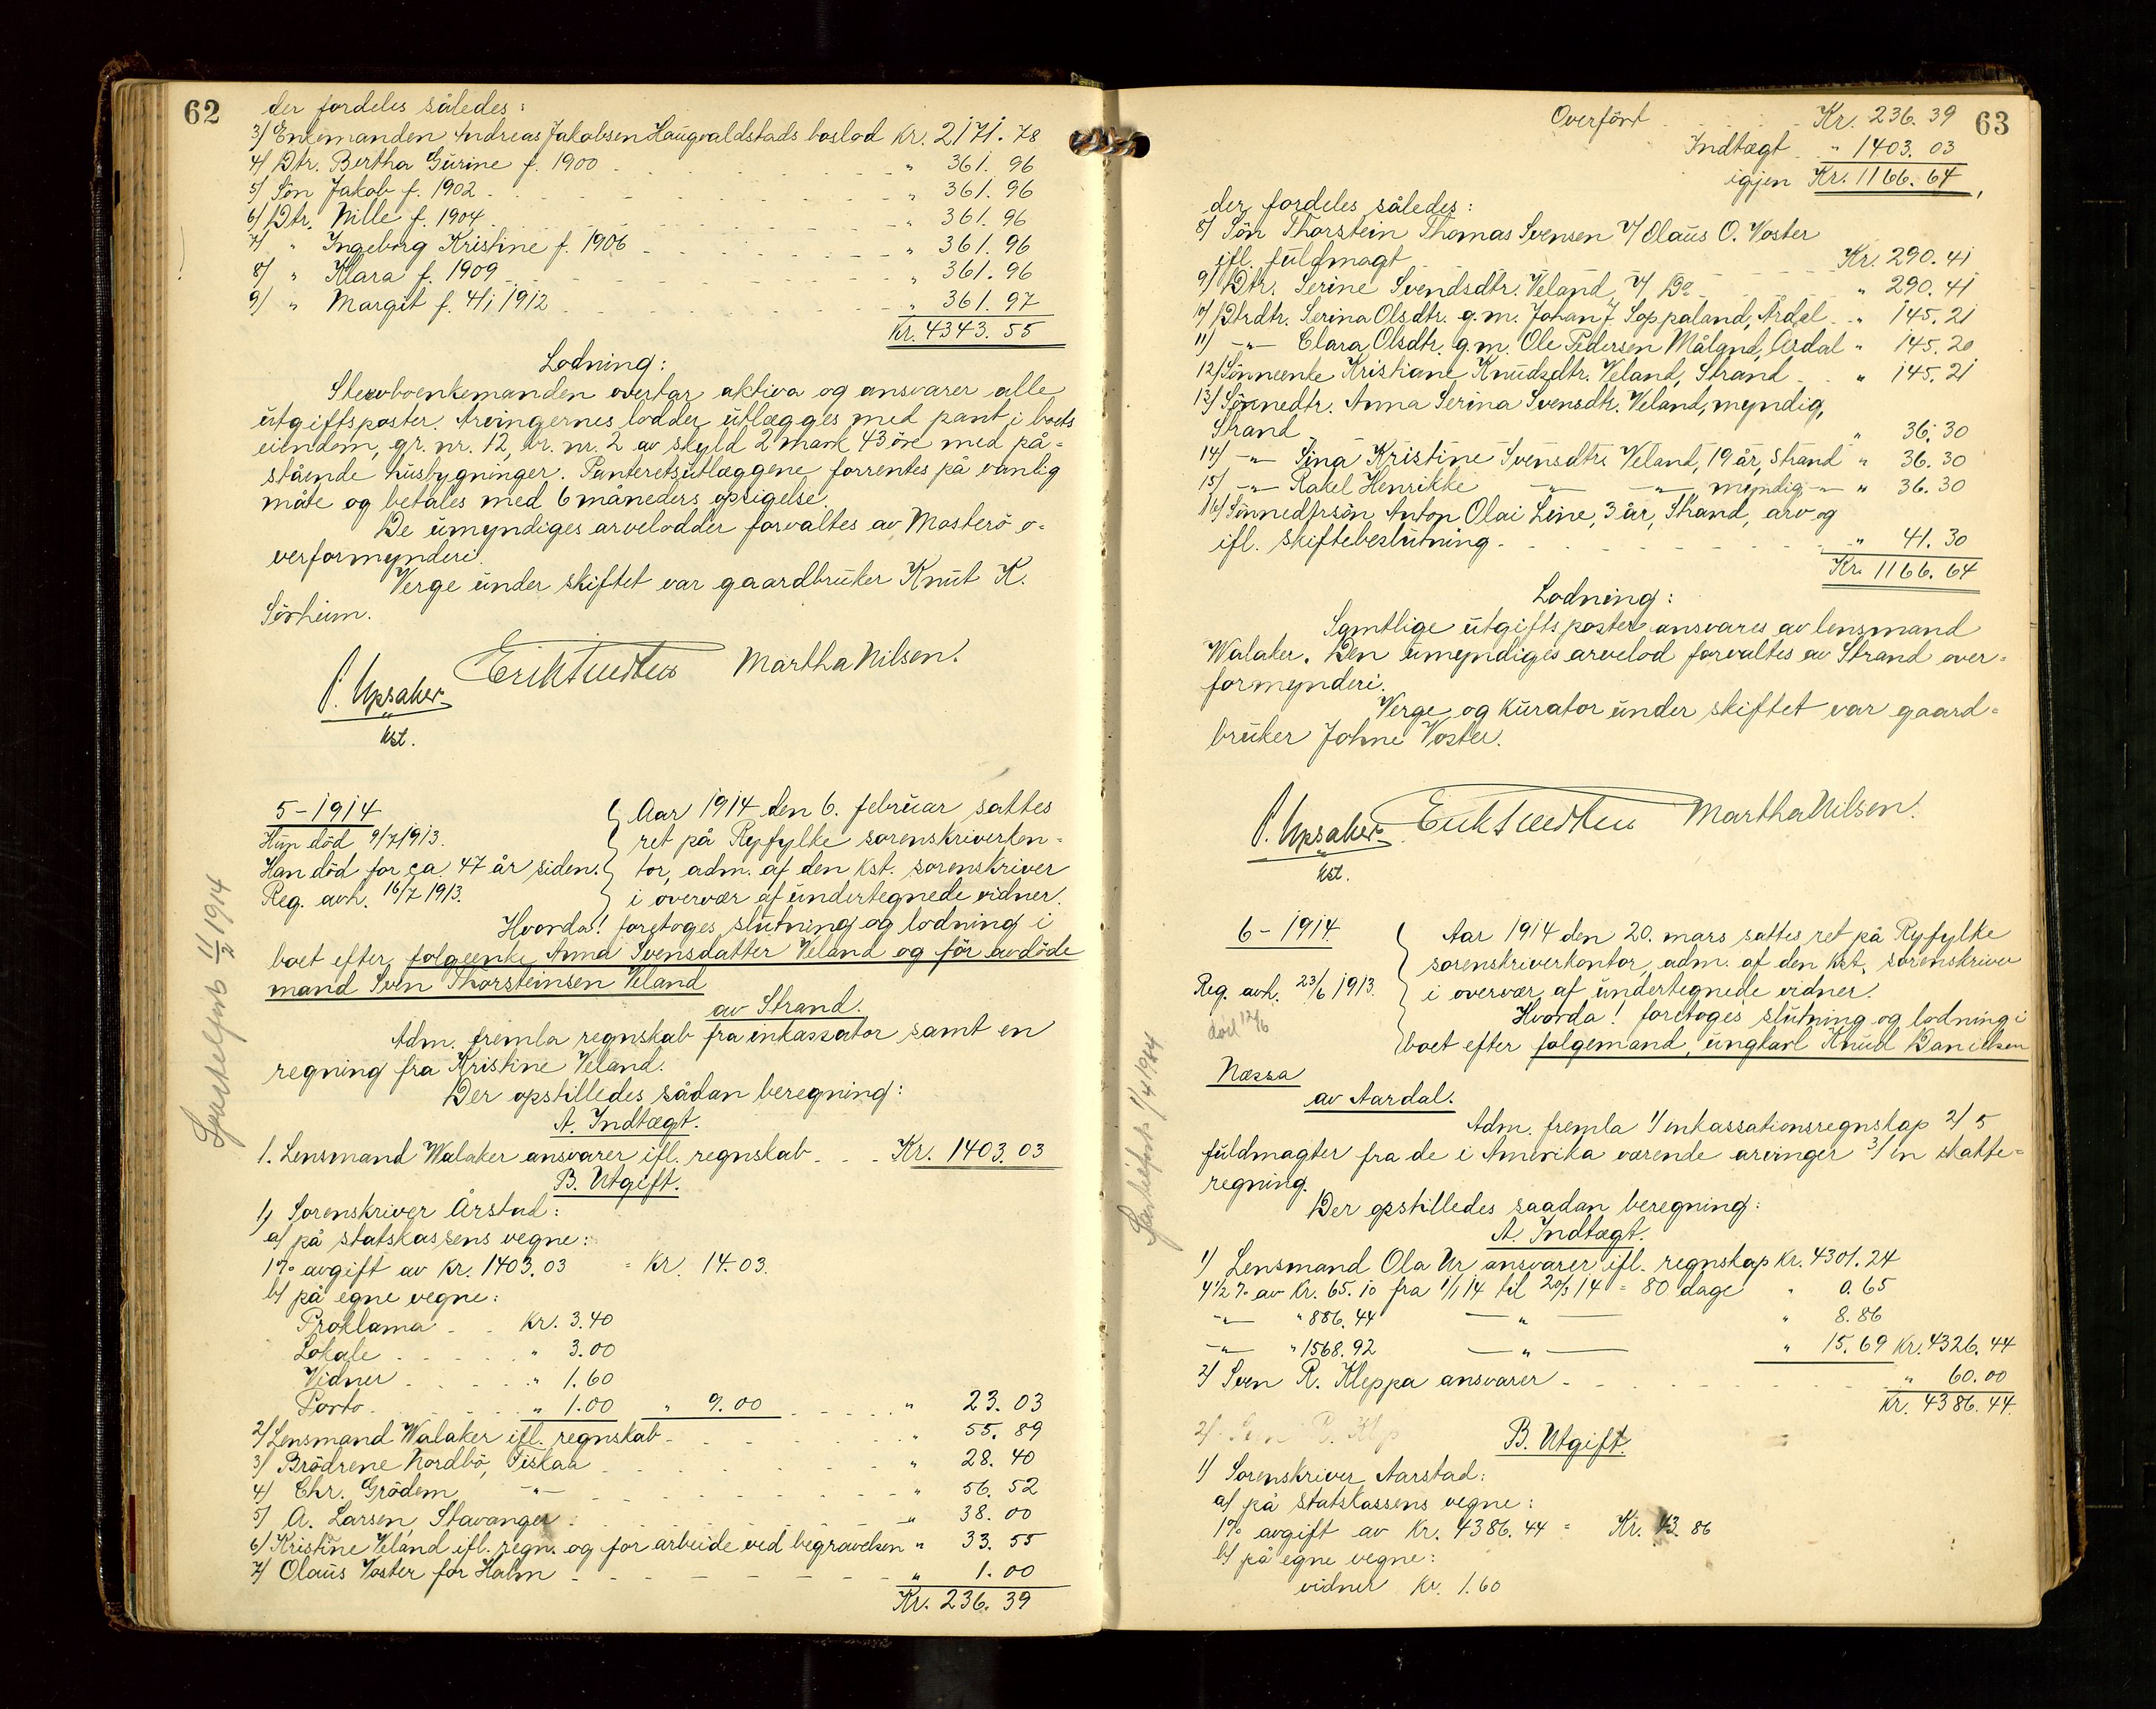 62
der fordeles således:
3) Enkemanden Andreas Jakobsen Haugvaldstads boslod Kr. 2171.78
4) Dtr. Bertha Gurine f. 1900 " 361.96
5) Sön Jakob f. 1902 " 361.96
6) Dtr. Nille f. 1904 " 361.96
7) " Ingeborg Kristine f. 1906 " 361.96
8) " Klara f. 1909 " 361.96
9) " Margit f. 4/1 1912 " 361.97
Kr. 4343.55
Lodning:
Stervboenkemanden overtar aktiva og ansvarer alle
utgiftsposter. Arvingernes lodder utlægges med pant i boets
eiendom, gr. nr. 12, br. nr. 2 av skyld 2 mark 43 öre med på=
stående husbygninger. Panteretsutlæggene forrentes på vanlig
måte og betales med 6 måneders opsigelse.
De umyndiges arvelodder forvaltes av Mosterö o=
verformynderi.
Verge under skiftet var gaardbruker Knut K.
Sörheim.
P. Upsaker Martha Nilsen.
kst.
5-1914
Hun död 9/7 1913.
Han död for ca. 47 år siden.
Reg. avh. 16/7 1913.
Aar 1914 den 6. februar sattes
ret på Ryfylke sorenskriverken=
tor, adm. af den kst. sorenskriver
i overvær af undertegnede vidner.
Hvorda! foretoges slutning og lodning i
boet efter folgeenke Anna Svensdatter Veland og för avdöde
mand Sven Thorsteinsen Veland
av Strand.
Adm. fremla regnskab fra inkassator samt en
regning fra Kristine Veland.
Der opstilledes sådan beregning:
A. Indtægt.
1. Lensmand Walaker ansvarer ifl. regnskab Kr. 1403.03
B. Utgift.
1) Sorenskriver Årstad:
a) på statskassens vegne:
1% avgift av Kr. 1403.03 = Kr. 14.03.
b) på egne vegne:
Proklama Kr. 3.40
Lokale " 3.00
Vidner " 1.60
Porto " 1.00 " 9.00 " 23.03
2) Lensmand Walaker ifl. regnskab " 55.89
3) Brödrene Nordbö, Fiskaa " 28.40
4) Chr. Grödem -"- " 56.52
5) A. Larsen, Stavanger " 38.00
6) Kristine Veland ifl. regn. og for arbeide ved begravelsen " 33.55
7) Olaus Voster for Halm " 1.00
Kr. 236.39
63
Overfört Kr. 236.39
Indtægt " 1403.03
igjen Kr. 1166.64,
der fordeles således:
8) Sön Thorstein Thomas Svensen v/ Olaus O. Voster
ifl. fuldmagt Kr. 290.41
9) Dtr. Serine Svendsdtr. Veland, v/ Do " 290.41
10) Dtrdtr. Serina Olsdtr. g.m. Johan J. Soppaland, Årdal " 145.21
11) -"- Clara Olsdtr. g.m. Ole Pedersen Måland, Årdal " 145.20
12) Sönneenke Kristiane Knudsdtr. Veland, Strand " 145.21
13) Sönnedtr. Anna Serina Svensdtr. Veland, myndig,
Strand " 36.30
14) -"- Sina Kristine Svensdtr. Veland, 19 år, Strand " 36.30
15) -"- Rakel Henrikke -"- -"- myndig -"- " 36.30
16) Sönnedtrsön Anton Olai Leine, 3 år, Strand, arv og
ifl. skiftebeslutning " 41.30
Kr. 1166.64
Lodning:
Samtlige utgiftsposter ansvares av lensmand
Walaker. Den umyndiges arvelod forvaltes av Strand over=
formynderi.
Verge og kurator under skiftet var gaard=
bruker Johne Voster.
P. Upsaker Martha Nilsen.
kst.
6-1914
Reg. avh. 23/6 1913.
död 12/6
Aar 1914 den 20. mars sattes ret på Ryfylke
sorenskriverkontor, adm. af den kst. sorenskriver
i overvær af undertegnede vidner.
Hvorda! foretoges slutning og lodning i
boet efter folgemand, ungkarl Knud Danielsen
Næssa
av Aardal.
Adm. fremla 1/ inkassationsregnskap 2/ 5
fuldmagter fra de i Amerika værende arvinger 3/ en skatte=
regning.
Der opstilledes saadan beregning:
A. Indtægt.
1) Lensmand Ola Ur ansvarer ifl. regnskap Kr. 4301.24
4 1/2 % av Kr. 65.10 fra 1/1 14 til 20/3 14 = 80 dage " 0.65
-"- " 886.44 -"- " 8.86
-"- " 1568.92 -"- " 15.69 Kr. 4326.44
2) Sven R. Kleppa ansvarer " 60.00
Kr. 4386.44
B. Utgift.
1) Sorenskriver Aarstad:
a) på statskassens vegne:
1% avgift av Kr. 4386.44 = Kr. 43.86
b) på egne vegne:
vidner Kr. 1.60